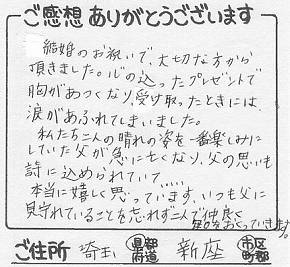 ご感想ありがとうございます
結婚のお祝いで、大切な方から
頂きました。心の込ったプレゼントで
胸があつくなり、受け取ったときには
涙があふれてしまいました。
私たち二人の晴れの姿を一番楽しみに
していた父が急に亡くなり、父の思いも
詩に込められていて
本当に嬉しく思っています。いつも父に
見守れていることを忘れず二人で仲良く
歩んでいきます。
ご住所 埼玉 都道府県 新座 市区町郡